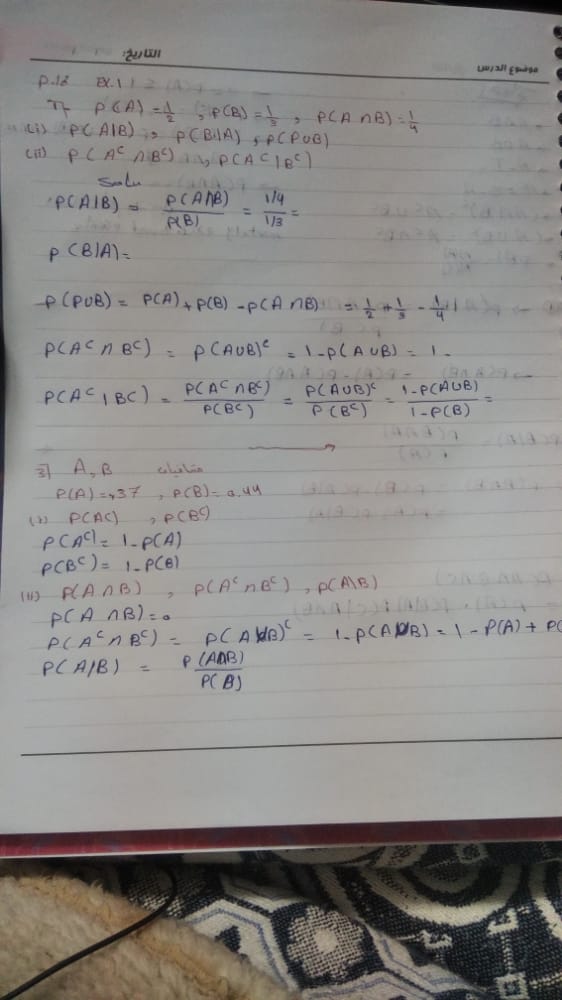 موضوع الدرس التاريخ:
P.16 EX.1
If P(A)=1/2 , P(B)=1/3 , P(A∩B)=1/4
(i) P(A|B) , P(B|A) , P(PUB)
(ii) P(Aᶜ∩Bᶜ) , P(Aᶜ|Bᶜ)
Solu
P(A|B) = P(A∩B)/P(B) = 1/4/1/3 =
P(B|A)=
P(PUB) = P(A)+P(B)-P(A∩B) = 1/2+1/3-1/4
P(Aᶜ∩Bᶜ) = P(AUB)ᶜ = 1-P(AUB) = 1-
P(Aᶜ|Bᶜ) = P(Aᶜ∩Bᶜ)/P(Bᶜ) = P(AUB)ᶜ/P(Bᶜ) = 1-P(AUB)/1-P(B) =
3] A,B متنافيات
P(A)=,37 , P(B)=0.44
(i) P(Aᶜ) , P(Bᶜ)
P(Aᶜ)= 1-P(A)
P(Bᶜ)= 1-P(B)
(ii) P(A∩B) , P(Aᶜ∩Bᶜ) , P(A|B)
P(A∩B)=0
P(Aᶜ∩Bᶜ) = P(AUB)ᶜ = 1-P(AUB) = 1-P(A)+P(
P(A|B) = P(A∩B)/P(B)